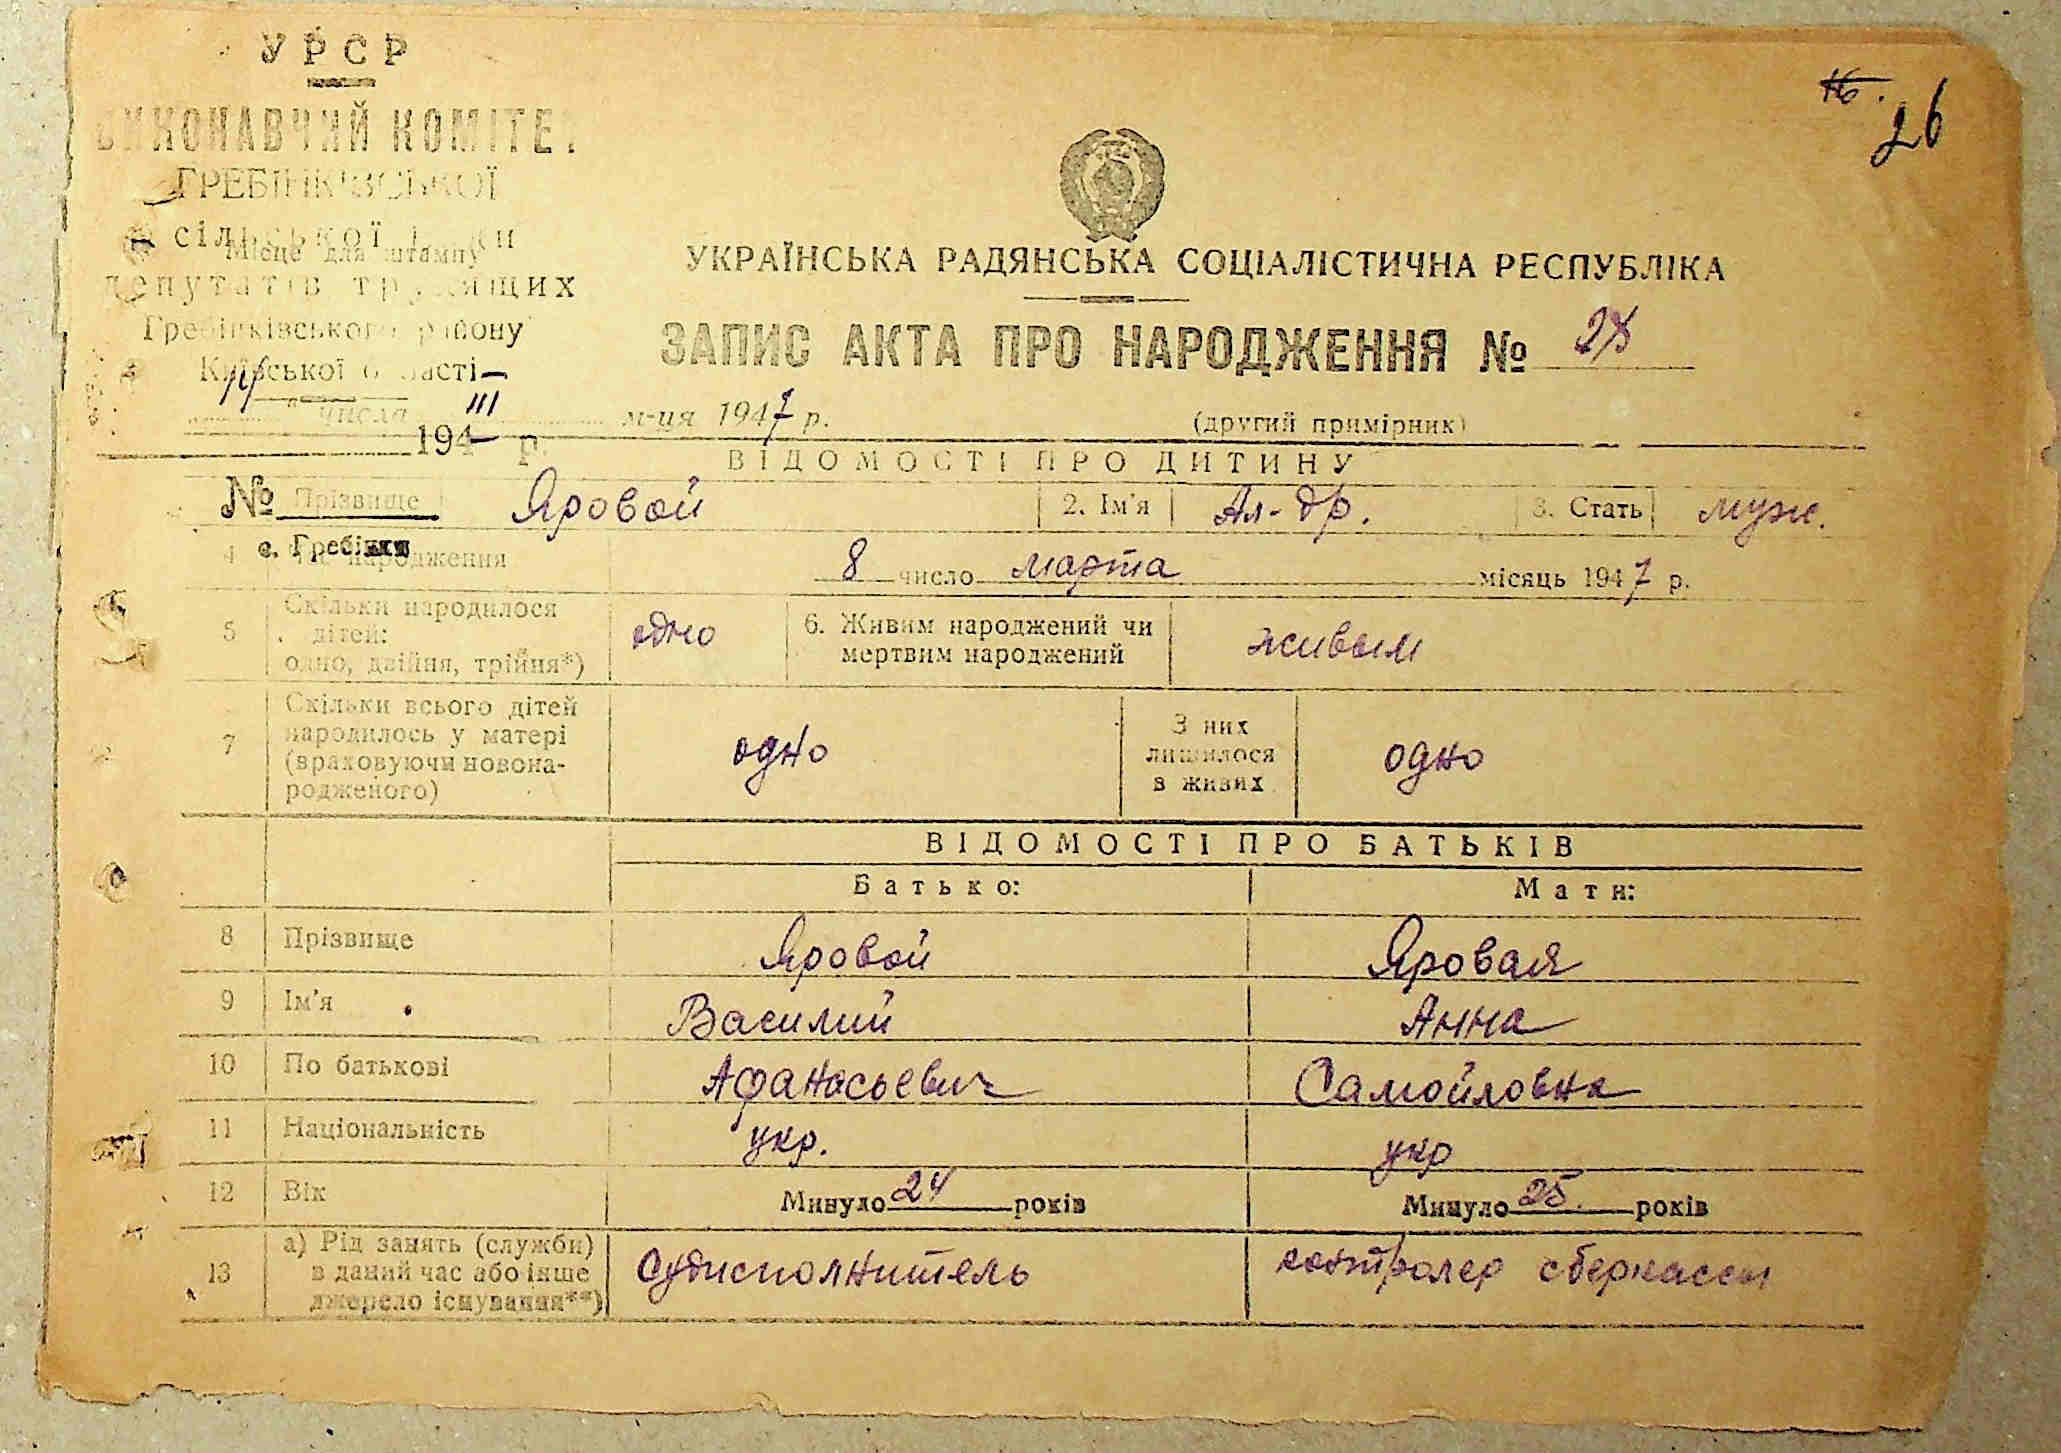 УРСР
ВИКОНАВЧИЙ КОМІТЕТ
ГРЕБІНКІВСЬКОЇ
сільської Ради
Місце для штампу
депутатів трудящих
Гребінківського району
Київської області
числа III м-ця 1947 р.
194 р.
16.
26
УКРАЇНСЬКА РАДЯНСЬКА СОЦІАЛІСТИЧНА РЕСПУБЛІКА
ЗАПИС АКТА ПРО НАРОДЖЕННЯ №
(другий примірник)
ВІДОМОСТІ ПРО ДИТИНУ
№ Прізвище Яровой 2. Ім'я Ал-др. 3. Стать муж.
с. Гребінки
4 народження 8 число марта місяць 1947 р.
5 Скільки народилося дітей: одно, двійня, трійня*) одно 6. Живим народжений чи мертвим народжений живым
7 Скільки всього дітей народилось у матері (враховуючи новонародженого) одно З них лишилося в живих одно
ВІДОМОСТІ ПРО БАТЬКІВ
Батько: Мати:
8 Прізвище Яровой Яровая
9 Ім'я Василий Анна
10 По батькові Афанасьевич Самойловна
11 Національність укр. укр
12 Вік Минуло 24 років Минуло 25 років
13 а) Рід занять (служби) в даний час або інше джерело існування**) Судисполнитель контролер сберкассы